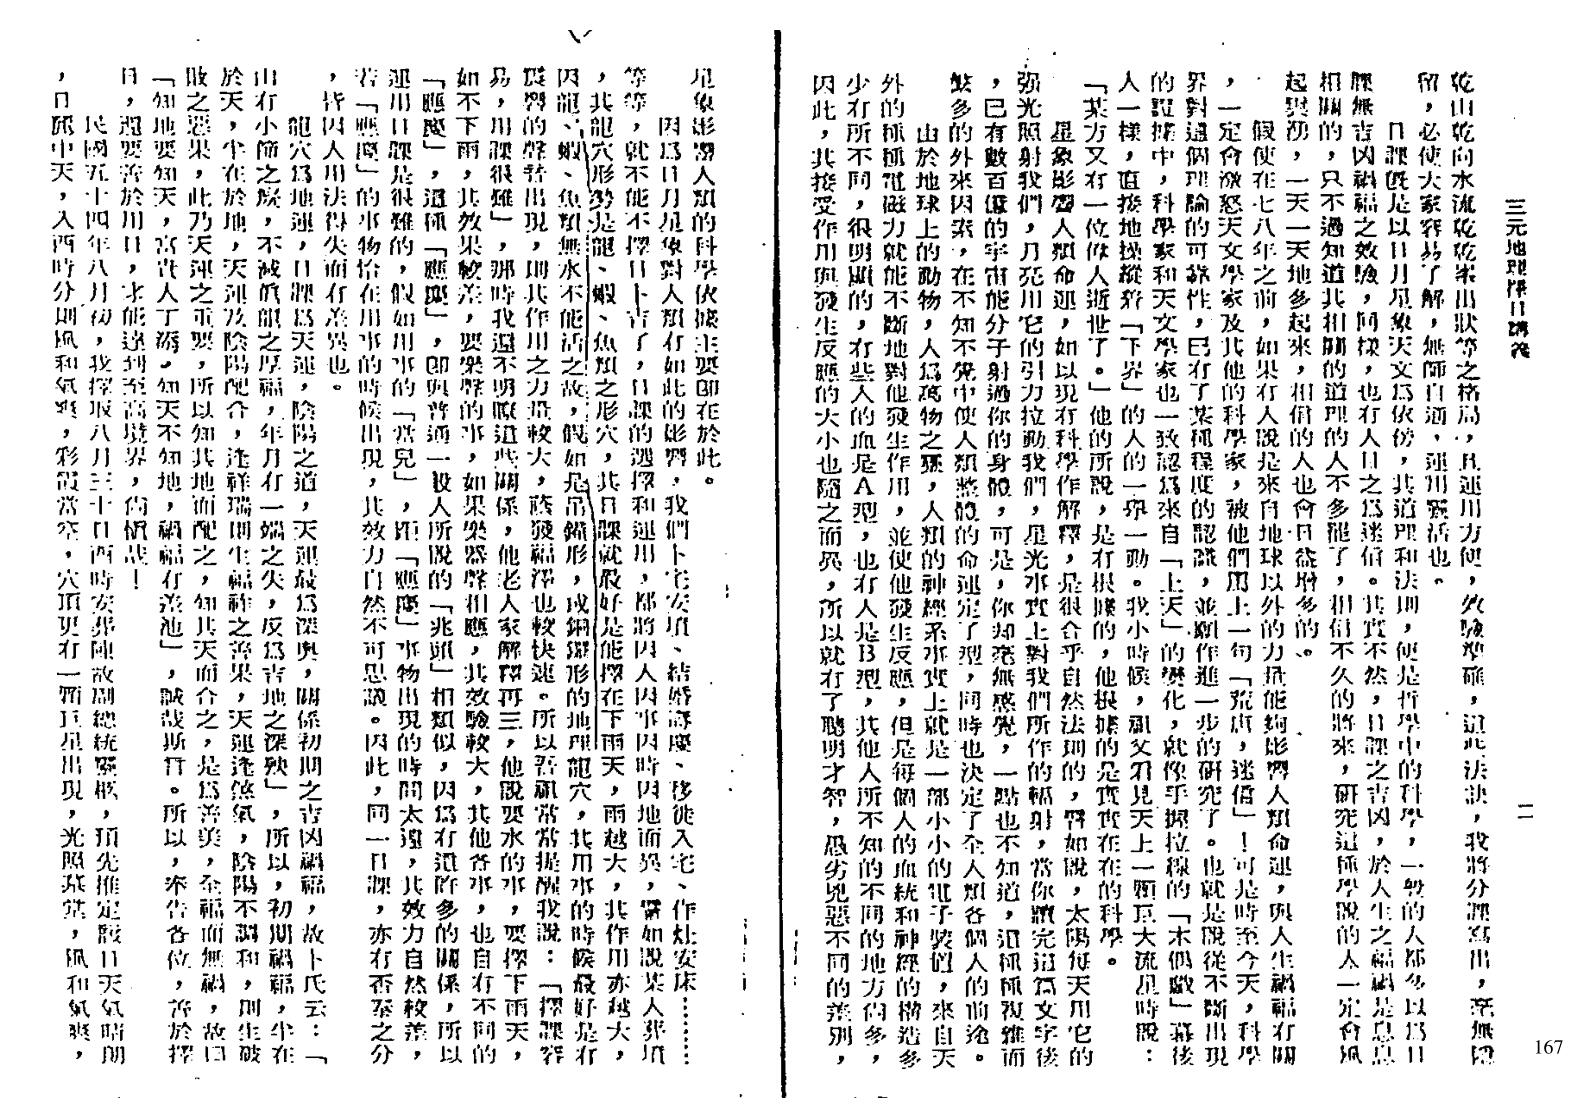 三元地理擇日講義
一一
乾山乾向水流乾乾峯出狀等之格局,且運用方便,效驗準確,這些法訣,我將分課寫出,毫無隱
留,必使大家容易了解,無師自通,運用靈活也。
日課既是以日月星象天文為依傍,其道理和法則,便是哲學中的科學,一般的人都多以為日
課無吉凶禍福之效驗,同樣,也有人目之為迷信。其實不然,日課之吉凶,於人生之福禍是息息
相關的,只不過知道其相關的道理的人不多罷了,相信不久的將來,研究這種學說的人一定會風
起興湧,一天一天地多起來,相信的人也會日益增多的。
假使在七八年之前,如果有人說是來自地球以外的力量能夠影響人類命運,與人生禍福有關
,一定會激怒天文學家及其他的科學家,被他們罵上一句「荒唐,迷信」!可是時至今天,科學
界對這個理論的可靠性,已有了某種程度的認識,並願作進一步的研究了。也就是說從不斷出現
的證據中,科學家和天文學家也一致認為來自「上天」的變化,就像手握拉線的「木偶戲」幕後
人一樣,直接地操縱着「下界」的人的一舉一動。我小時候,祖父看見天上一顆巨大流星時說:
「某方又有一位偉人逝世了。」他的所說,是有根據的,他根據的是實實在在的科學。
星象影響人類命運,如以現有科學作解釋,是很合乎自然法則的,譬如說,太陽每天用它的
强光照射我們,月亮用它的引力拉動我們,星光事實上對我們所作的輻射,當你讀完這篇文字後
,已有數百億的宇宙能分子射過你的身體,可是,你却毫無感覺,一點也不知道,這種種複雜而
繁多的外來因素,在不知不覺中使人類整體的命運定了型,同時也決定了全人類各個人的前途。
由於地球上的動物,人為萬物之靈,人類的神經系事實上就是一部小小的電子裝置,來自天
外的種種電磁力就能不斷地對他發生作用,並使他發生反應,但是每個人的血統和神經的構造多
少有所不同,很明顯的,有些人的血是A型,也有人是B型,其他人所不知的不同的地方尚多,
因此,其接受作用與發生反應的大小也隨之而異,所以就有了聰明才智,愚劣兇惡不同的差別,
星象影響人類的科學依據主要即在於此。
因為日月星象對人類有如此的影響,我們卜宅安墳、結婚嫁慶、移徙入宅、作灶安床………
等等,就不能不擇日卜吉了,日課的選擇和運用,都將因人因事因時因地而異,譬如說某人葬墳
,其龍穴形勢是龍、蝦、魚類之形穴,其日課就最好是能擇在下雨天,雨越大,其作用亦越大,
因龍、蝦、魚類無水不能活之故,假如是吊鐘形,或銅鑼形的地理龍穴,其用事的時候最好是有
震響的聲音出現,則其作用之力量較大,蔭發福澤也較快速。所以吾祖常常提醒我說:「擇課容
易,用課很難」,那時我還不明瞭這些關係,他老人家解釋再三,他說要水的事,要擇下雨天,
如不下雨,其效果較差,要樂聲的事,如果樂器聲相應,其效驗較大,其他各事,也自有不同的
「應慶」,這種「應慶」,即與普通一般人所說的「兆頭」相類似,因為有這許多的關係,所以
運用日課是很難的,假如用事的「當兒」,距「應慶」事物出現的時間太遠,其效力自然較差,
若「應慶」的事物恰在用事的時候出現,其效力自然不可思議。因此,同一日課,亦有否泰之分
,皆因人用法得失而有差異也。
龍穴為地運,日課為天運,陰陽之道,天運最為深奧,關係初期之吉凶禍福,故卜氏云:「
山有小節之疵,不減眞龍之厚福,年月有一端之失,反為吉地之深殃」,所以,初期禍福,半在
於天,半在於地,天運及陰陽配合,逢祥瑞則生福祚之善果,天運逢煞氣,陰陽不調和,則生破
敗之惡果,此乃天運之重要,所以知其地而配之,知其天而合之,是為善美,全福而無禍,故曰
「知地要知天,富貴人丁添。知天不知地,禍福有差池」,誠哉斯言。所以,奉告各位,善於擇
日,還要善於用日,才能達到至高境界,尚愼哉!
民國五十四年八月初,我擇取八月三十日酉時安葬陳故副總統靈柩,預先推定該日天氣晴朗
,日麗中天,入酉時分則風和氣爽,彩霞當空,穴頂更有一顆巨星出現,光照墓堂,風和氣爽,
167